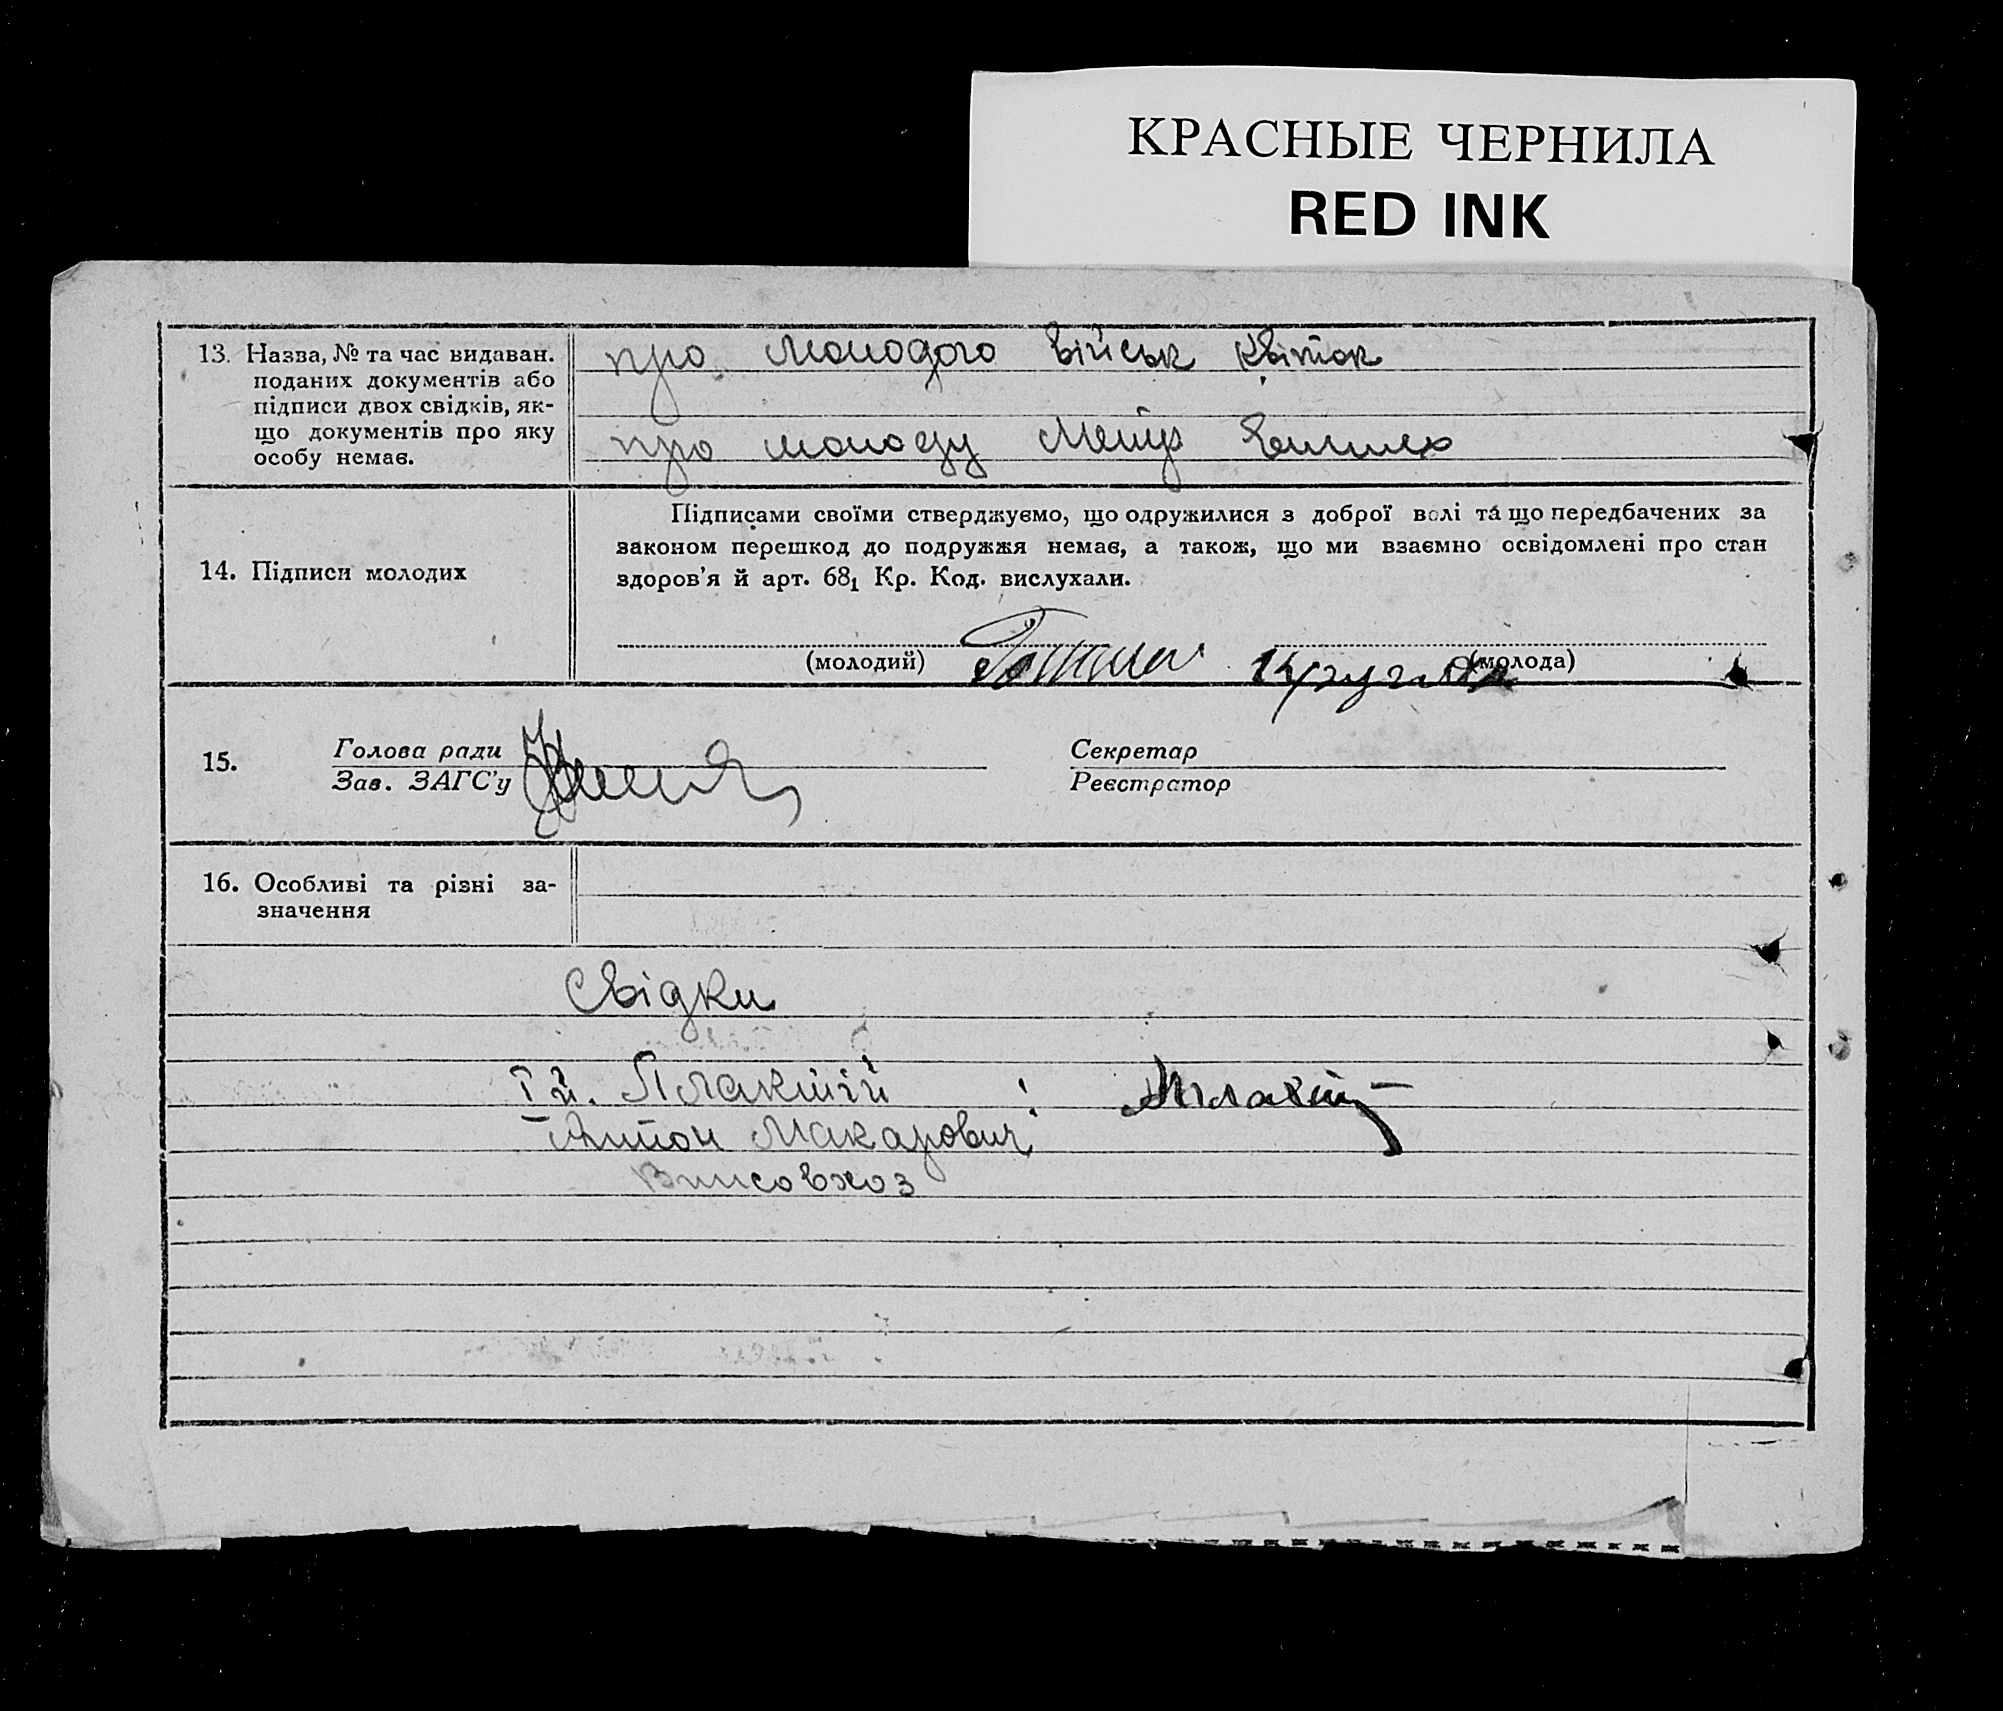 КРАСНЫЕ ЧЕРНИЛА
RED INK
13. Назва, № та час видаван.
поданих документів або
підписи двох свідків, як-
що документів про яку
особу немає.
про молодого військ квиток
про молоду
14. Підписи молодих
Підписами своїми стверджуємо, що одружилися з доброї волі та що передбачених за
законом перешкод до подружжя немає, а також, що ми взаємно освідомлені про стан
здоров'я й арт. 68₁ Кр. Код. вислухали.
(молодий) (молода)
15.
Голова ради
Зав. ЗАГС'у
Секретар
Реєстратор
16. Особливі та різні за-
значення
Свідки
Плаксій
Антон Макарович